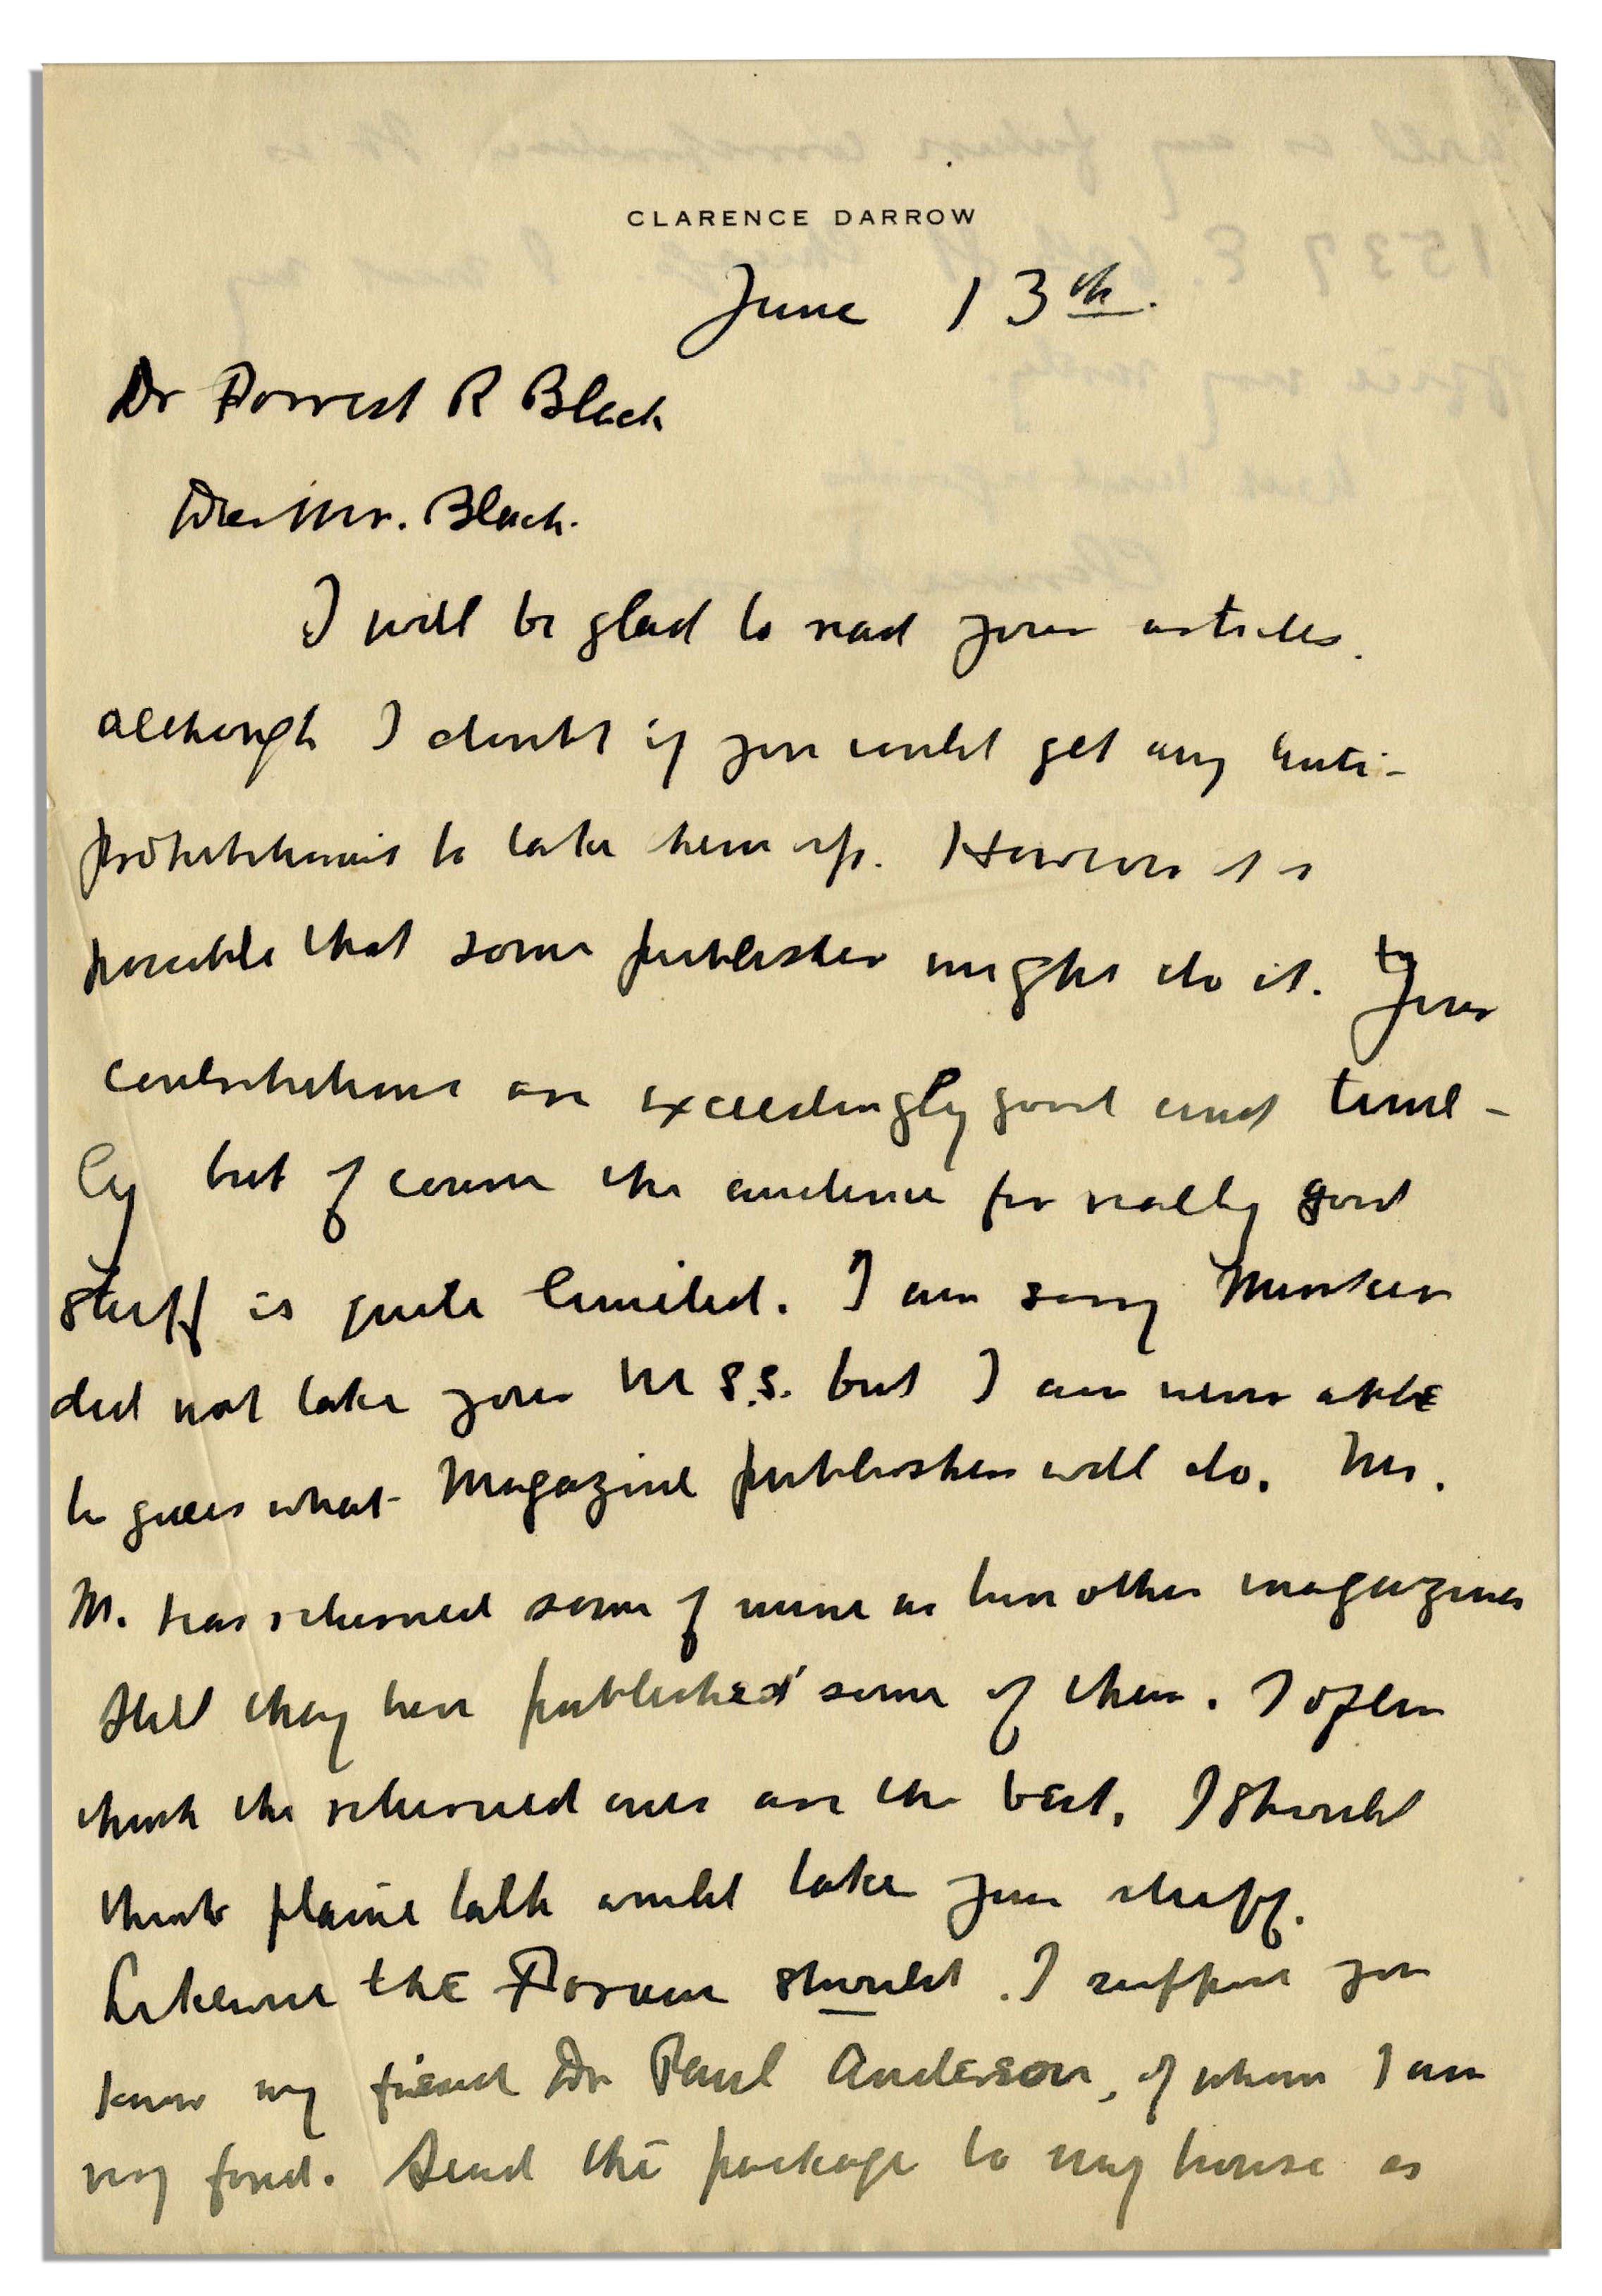 CLARENCE DARROW
June 13th.
Dr Forrest R Black
Dear Mr. Black.
I will be glad to read your articles.
although I doubt if you could get any anti-
prohibitionist to take them up. However it is
possible that some publisher might do it. Your
contributions are exceedingly good and time-
ly but of course the audience for really good
stuff is quite limited. I am sorry Menken
did not take your M S.S. but I am never able
to guess what Magazine publishers will do. Mr.
M. has returned some of mine as have other magazines
Still they have published some of them. I often
think the returned ones are the best. I should
think plaine talk would take your stuff.
Likewise the Forum should. I suppose you
know my friend Dr Paul Anderson, of whom I am
very fond. Send the package to my house as